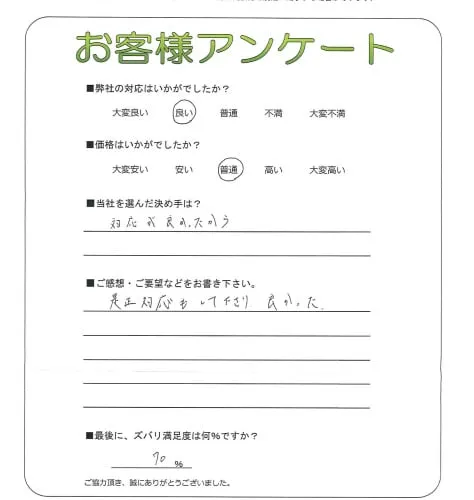 お客様アンケート
■弊社の対応はいかがでしたか？
大変良い 良い 普通 不満 大変不満
■価格はいかがでしたか？
大変安い 安い 普通 高い 大変高い
■当社を選んだ決め手は？
対応が良かったから
■ご感想・ご要望などをお書き下さい。
是正対応もして下さり良かった
■最後に、ズバリ満足度は何%ですか？
70 %
ご協力頂き、誠にありがとうございました。